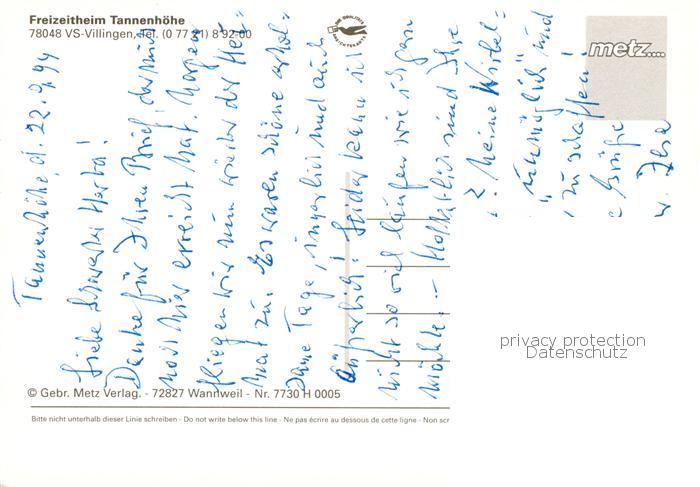 Freizeitheim Tannenhöhe
78048 VS-Villingen, Tel. (0 77 21) 8 92-00
metz....
Tannenhöhe, d. 22.9.94
Liebe Schwester Herta!
Danke für Ihren Brief, der mich
noch hier erreicht hat. Morgen
fliegen wir nun wieder der Hei-
mat zu. Es waren schöne erhol-
same Tage, innerlich und auch
äußerlich! Leider kann ich
nicht so viel laufen wie ich gern
möchte. - Hoffentlich sind Ihre
? Meine Wirbel-
unmöglich und
zu schaffen!
Grüße
Ilse
privacy protection
Datenschutz
© Gebr. Metz Verlag. - 72827 Wannweil - Nr. 7730 H 0005
Bitte nicht unterhalb dieser Linie schreiben - Do not write below this line - Ne pas écrire au dessous de cette ligne - Non scr